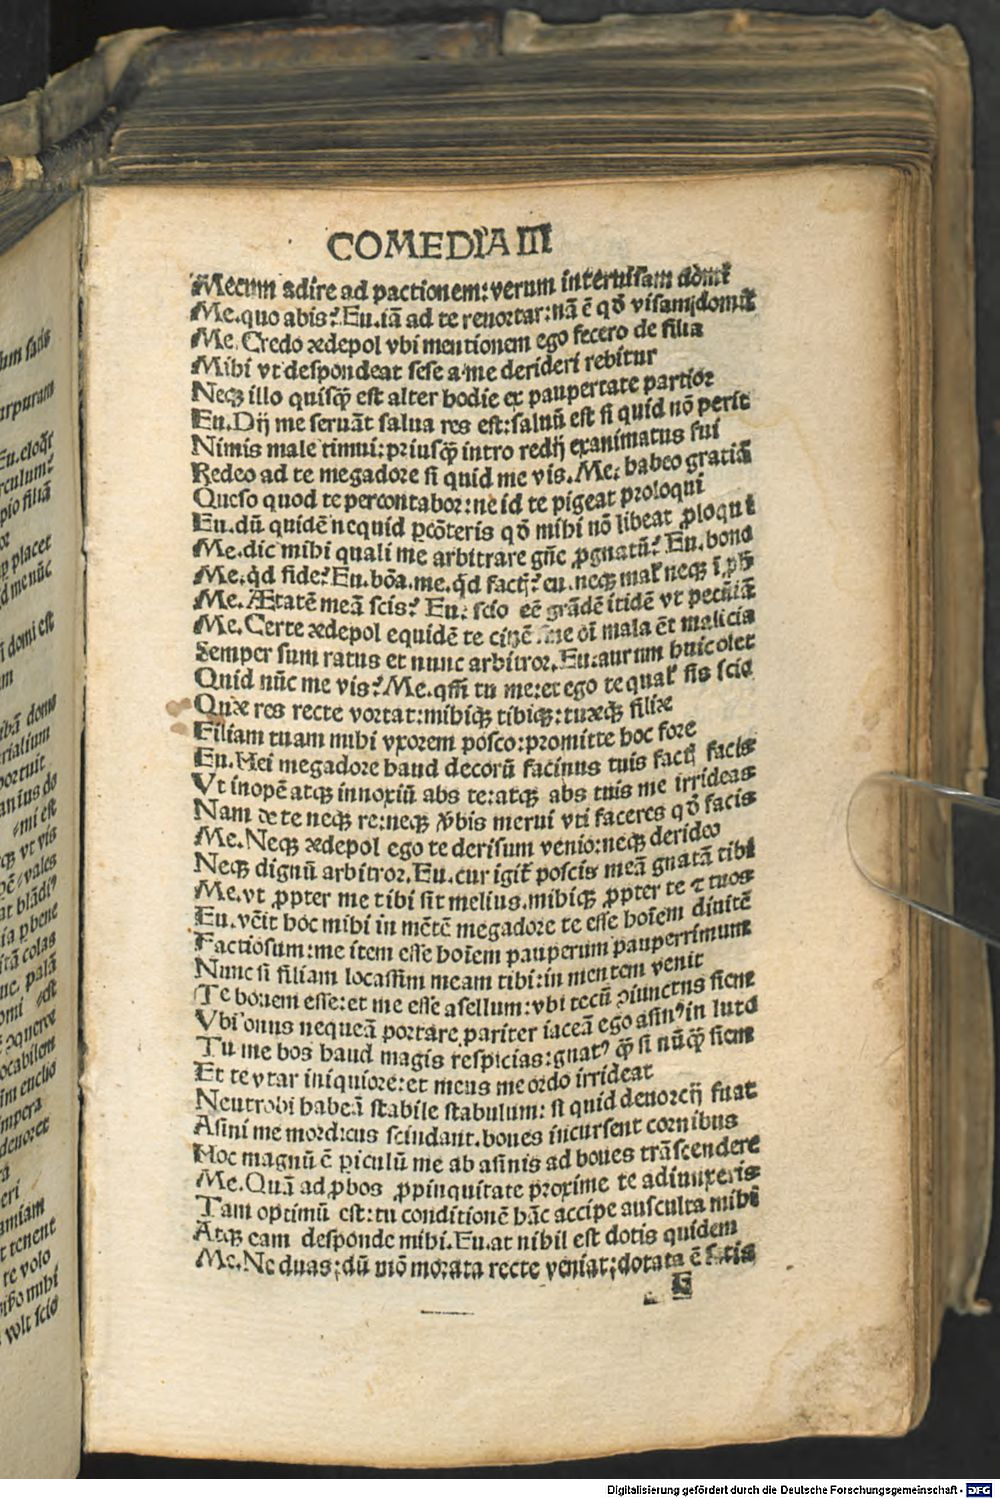 COMEDIA III
Mecum adire ad pactionem: verum interuisam domū
Me. quo abis? Eu. iā ad te reuortar: nā ē qđ visam domū
Me. Credo ædepol vbi mentionem ego fecero de filia
Mihi vt despondeat sese a me derideri rebitur
Neqȝ illo quisqȝ est alter hodie ex paupertate partior
Eu. Dij me seruāt salua res est: saluū est si quid nō perit
Nimis male timui: priusqȝ intro redij exanimatus fui
Redeo ad te megadore si quid me vis. Me. habeo gratiā
Queso quod te percontabor: ne id te pigeat proloqui
Eu. dū quidē nequid pcōteris qđ mihi nō libeat ploqui
Me. dic mihi quali me arbitrare gn̄e pgnatū? Eu. bono
Me. qd fide? Eu. bōa. me. qd factȷ? eu. neqȝ mal' neqȝ ī.pb
Me. Ætatē meā scis? Eu. scio eē grādē itidē vt pecūiā
Me. Certe ædepol equidē te ciuē sine oī mala ēt malicia
Semper sum ratus et nunc arbitror. Eu. aurum huic olet
Quid nūc me vis? Me. qm̄ tu me: et ego te qual' sis scio
Quæ res recte vortat: mihiqȝ tibiqȝ: tuæqȝ filiæ
Filiam tuam mihi vxorem posco: promitte hoc fore
Eu. Hei megadore haud decorū facinus tuis factȷ facis
Vt inopē atqȝ innoxiū abs te: atqȝ abs tuis me irrideas
Nam de te neqȝ re: neqȝ v̄bis merui vti faceres qđ facis
Me. Neqȝ ædepol ego te derisum venio: neqȝ derideo
Neqȝ dignū arbitror. Eu. cur igit' poscis meā gnatā tibi
Me. vt ppter me tibi sit melius. mihiqȝ ppter te ⁊ tuos
Eu. vēit hoc mihi in mētē megadore te esse hoīem diuitē
Factiosum: me item esse hoīem pauperum pauperrimum
Nunc si filiam locassim meam tibi: in mentem venit
Te bouem esse: et me esse asellum: vbi tecū ꝯiunctus siem
Vbi onus nequeā portare pariter iaceā ego asin⁹ in luto
Tu me bos haud magis respicias: gnat⁹ qȝ si nūqȝ siem
Et te vtar iniquiore: et meus me ordo irrideat
Neutrobi habeā stabile stabulum: si quid deuorcij fuat
Asini me mordicus scindant. boues incursent cornibus
Hoc magnū ē piculū me ab asinis ad boues trāscendere
Me. Quā ad pbos ppinquitate proxime te adiunxeris
Tam optimū est: tu conditionē hāc accipe ausculta mihi
Atqȝ eam desponde mihi. Eu. at nihil est dotis quidem
Me. Ne duas: dū mō morata recte veniat; dotata ē satis
Digitalisierung gefördert durch die Deutsche Forschungsgemeinschaft - DFG